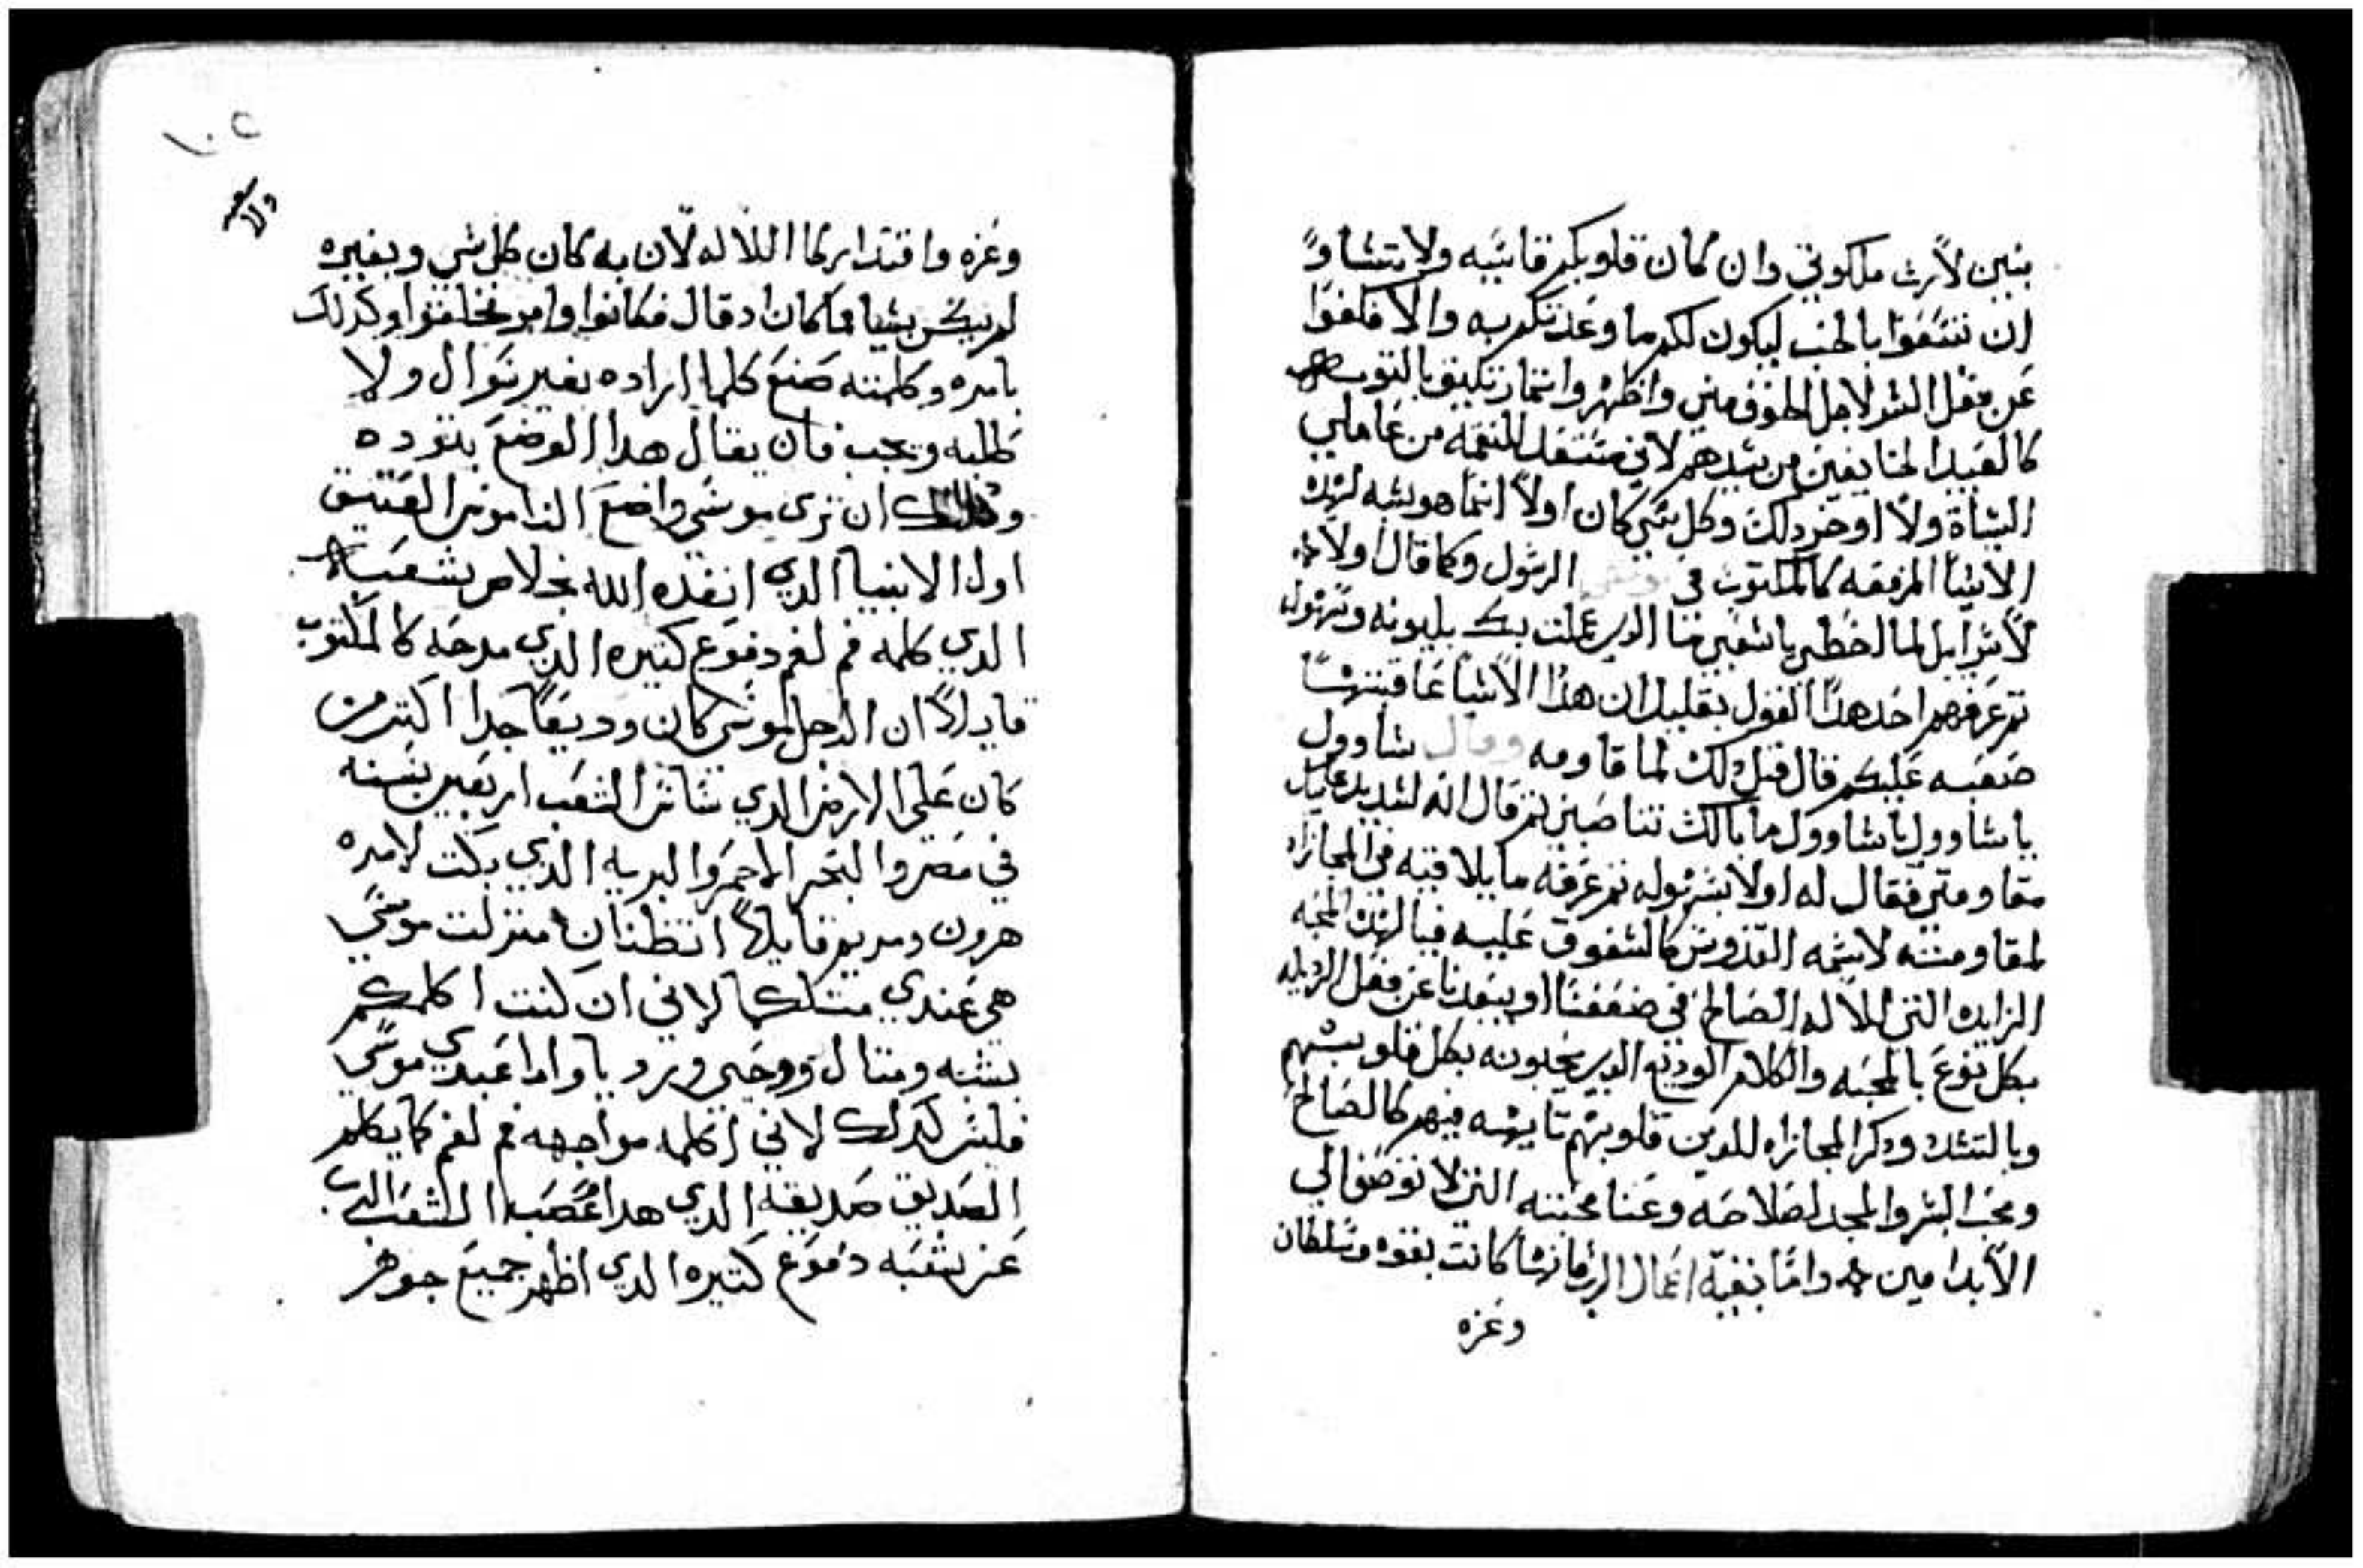 بنين لأرث ملكوتي وان كان قلوبكم قاسيه ولا تتشاوا
ان تتسعوا بالحب ليكون لكم ما وعدتكم به والا فكفوا
عن فعل الشر لاجل الخوف مني واظهروا
كالعبيد الخايفين من سيدهم لاني مستعد للنقمه من عاملي
السأة ولا اوخر دلك وكل شي كان اولا انما هو شبه لهده
الاشيا المزمعه كالمكتوب في الرسول وكما قال اولا
لاسراييل لما اخطي يا شعبي منا الدي عملت بك
تم عرفهم احد هدا القول بقليل ان هدا الاشيا عاقبتها
صعبه عليكم قال قبل دلك لما قاومه وقال شاوول
ياشاوول ياشاوول ما بالك تناصبني تم قال انه لشديد عليك
مقاومتي فقال له اولا بسهوله تم عرفه ما يلاقيه في المجازاه
لمقاومته لاسمه القدوس كالشفوق عليه فيا لهده المحبه
الزايده التي للاله الصالح في ضعفنا او يبعدنا عن فعل الرديله
بكل نوع بالمحبه والكلام الوديع الدين يحبونه بكل قلوبهم
وبالتشدد ودكر المجازاه للدين قلوبهم قاسيه منهم كالصالح
ومحب البشر والمجد لصلاحه وعنا محبته التي لا توصف الي
الأبد امين وامّا بقية اعمال الرب فانها كانت بقوه وسلطان
وعزه
١٠٥
وعزه واقتدار كما اللاله لأن به كان كل شي وبغيره
لم يكن شيا مما كان اد قال فكانوا وامر فخلقوا وكدلك
بامره وكلمته صنع كلما اراده بغير سوال ولا
طلبه ويجب فان يقال هدا الموضع بتوده
ودلك ان تري موسي واضع الناموس العتيق
اول الانبيا الدي انفده الله بخلاص شعبه
الدي كلمه فم لفم دفوع كتيره الدي مدحه كالمكتوب
قايلاً ان الرجل موسي كان وديعاً جدا اكتر من
كان علي الارض الدي ساس الشعب اربعين سنه
في مصر والبحر الاحمر والبريه الدي بكت لامره
هرون ومريم قايلاً اتظنان منزلت موسي
هي عندي متلكما لاني ان كنت اكلمكم
بشبه ومتال ووحي ورويا واما عبدي موسي
فليس كدلك لاني اكلمه مواجهه فم لفم كما يكلم
الصديق صديقه الدي هدا غضب الشعب الرب
عن شعبه دفوع كتيره الدي اظهر جميع جوهر